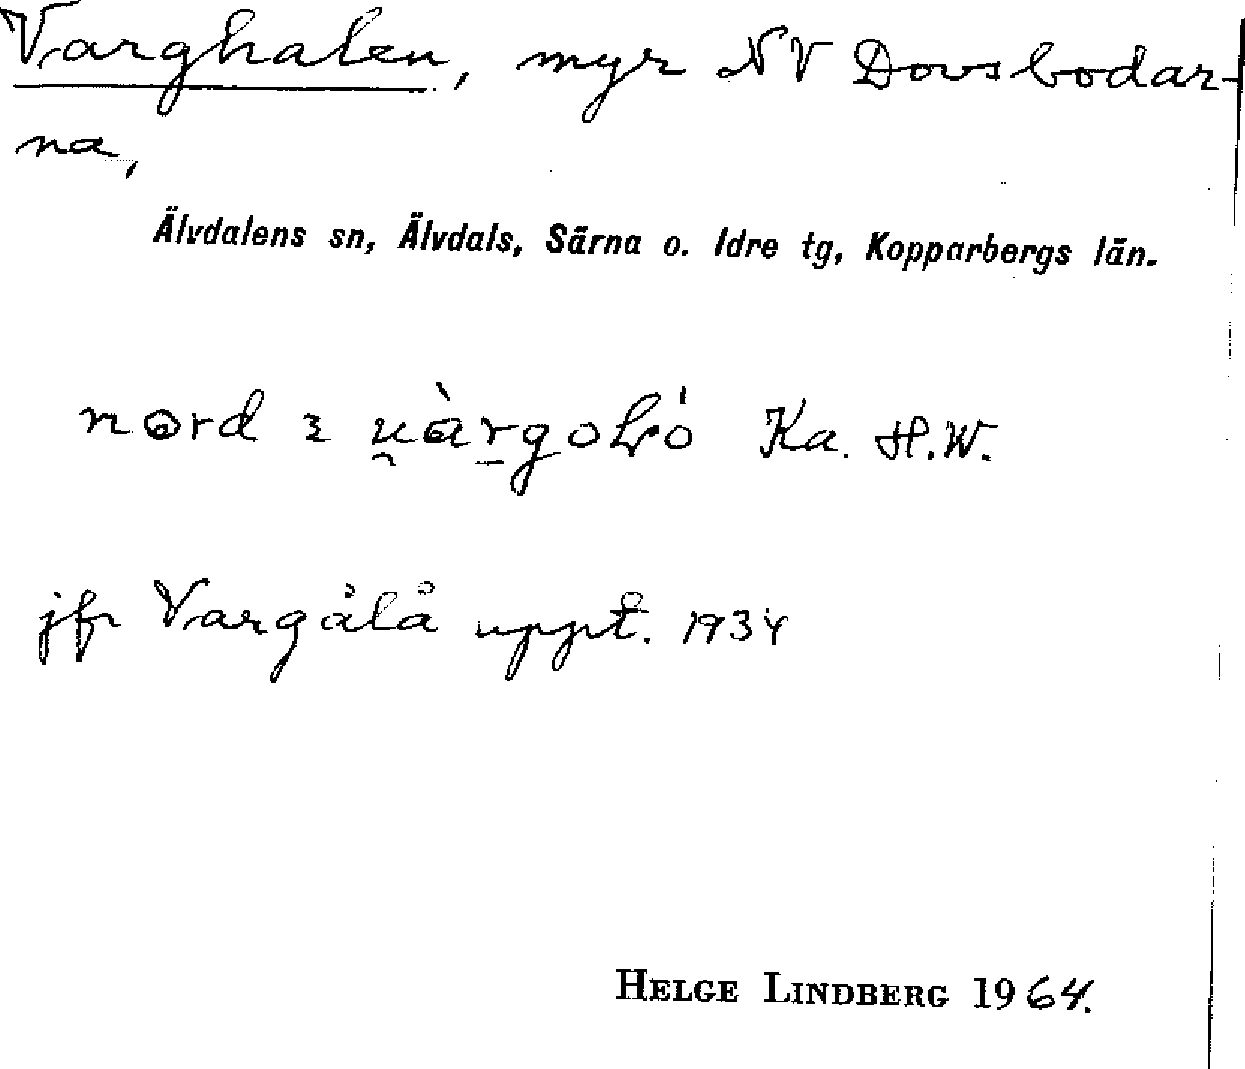 Varghalen, myr NV Dovsbodar-
na,
Älvdalens sn, Älvdals, Särna o. Idre tg, Kopparbergs län.
Ka. H.W.
jfr Vargålå uppt. 1934
HELGE LINDBERG 1964.